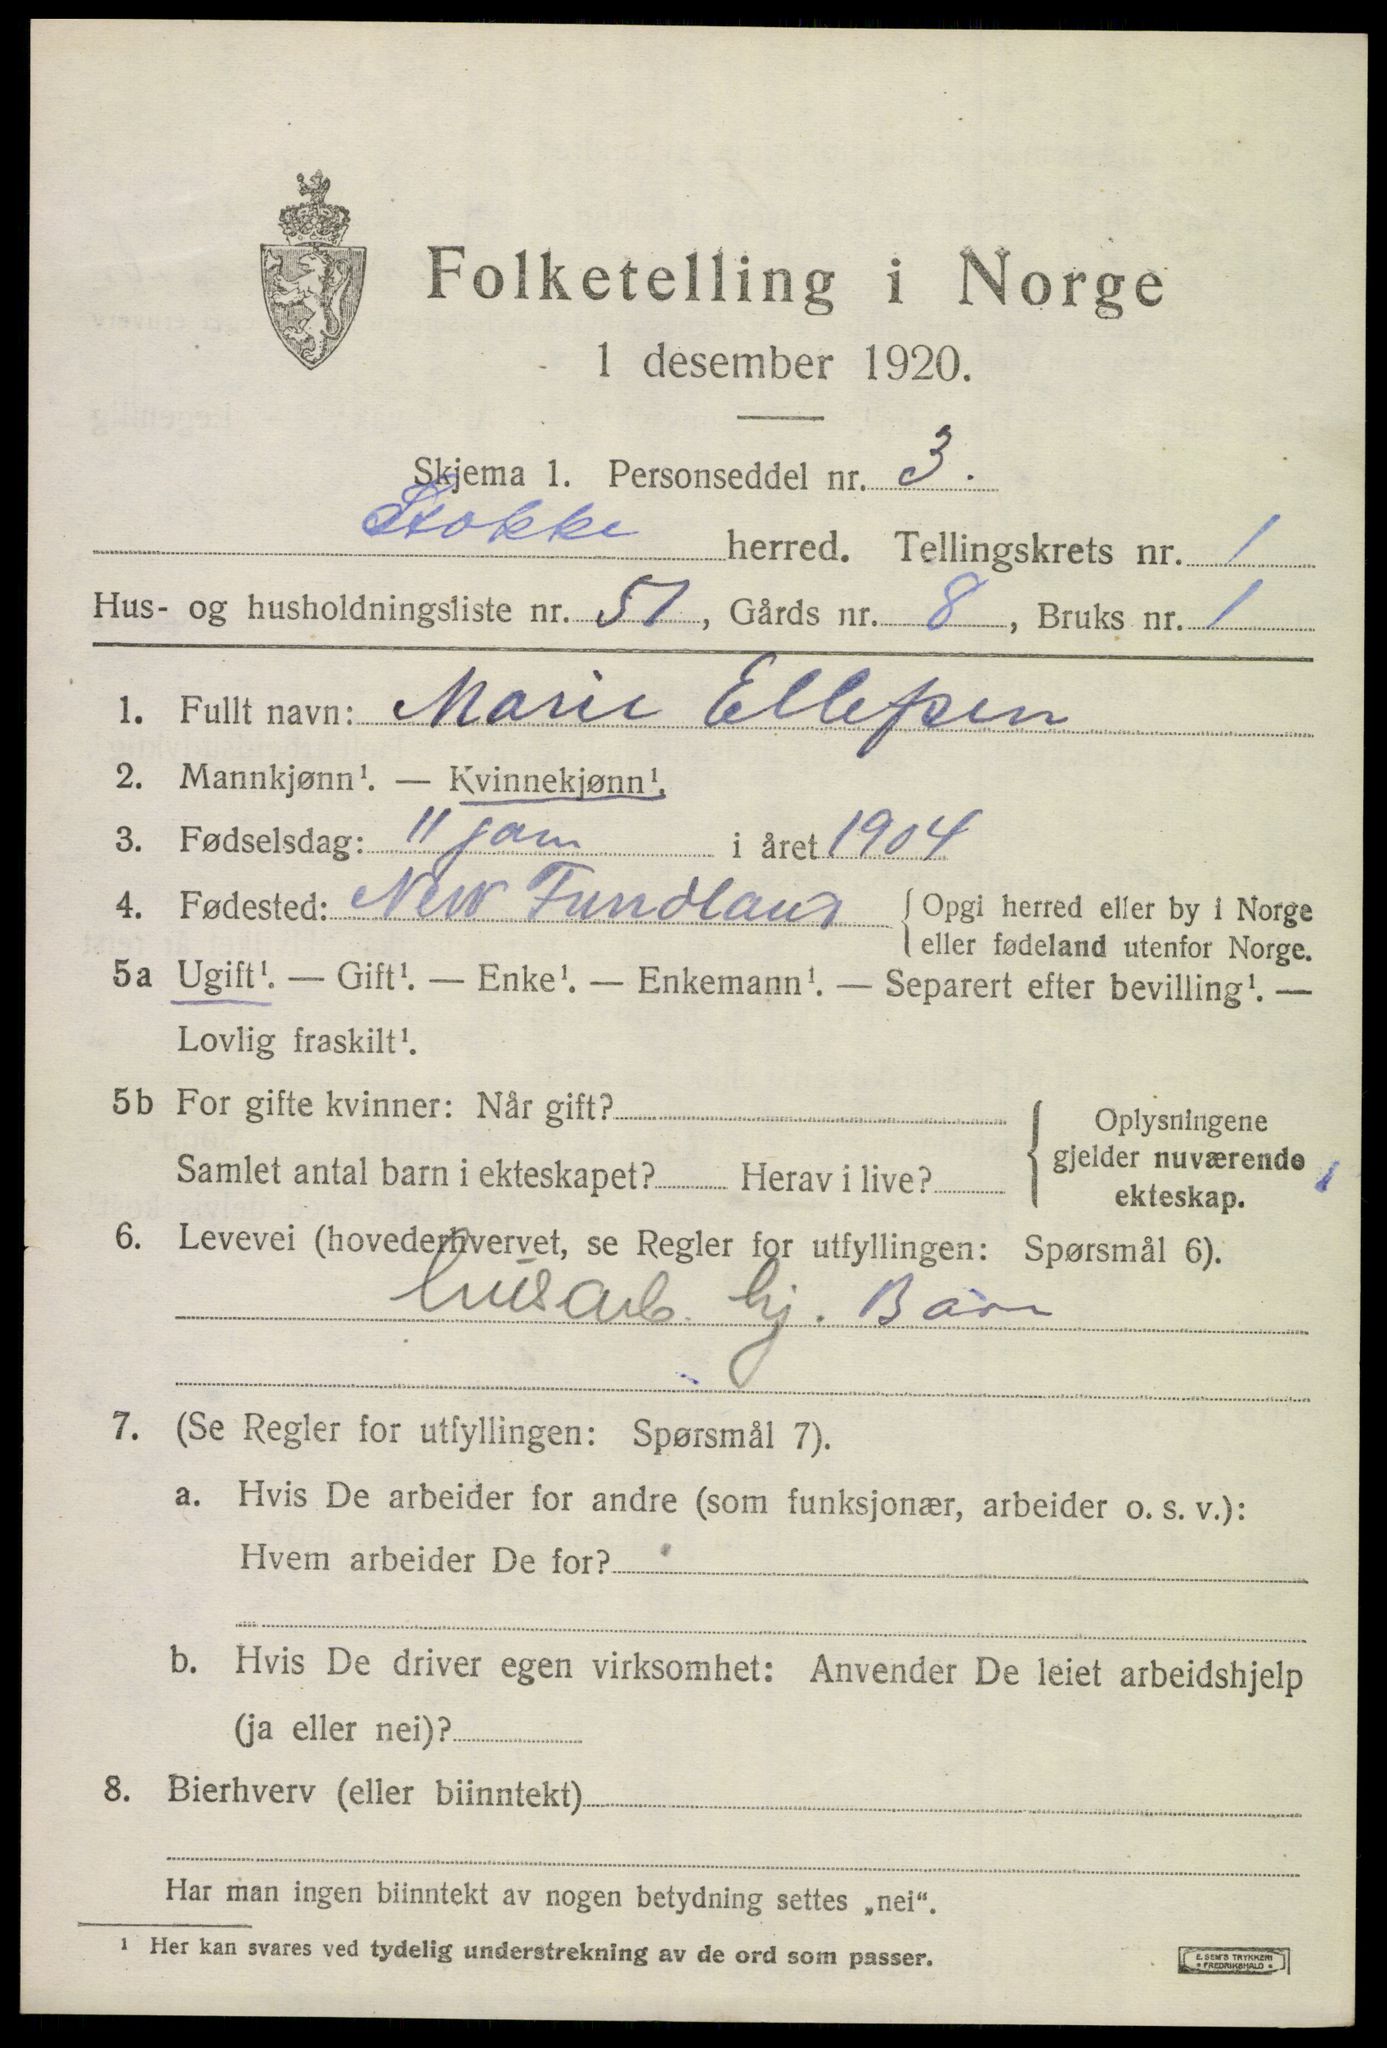 Folketelling i Norge
1 desember 1920.
Skjema 1. Personseddel nr. 3.
Stokke herred. Tellingskrets nr. 1
Hus- og husholdningsliste nr. 51, Gårds nr. 8, Bruks nr. 1
1. Fullt navn: Marie Ellefsen
2. Mannkjønn¹. — Kvinnekjønn¹.
3. Fødselsdag: 11 jan i året 1904
4. Fødested: New Fundland { Opgi herred eller by i Norge
eller fødeland utenfor Norge.
5a Ugift¹. — Gift¹. — Enke¹. — Enkemann¹. — Separert efter bevilling¹. —
Lovlig fraskilt¹.
5b For gifte kvinner: Når gift? { Oplysningene
gjelder nuværende
ekteskap. 1
Samlet antal barn i ekteskapet? Herav i live?
6. Levevei (hovederhvervet, se Regler for utfyllingen: Spørsmål 6).
husarb. hj. Barn
7. (Se Regler for utfyllingen: Spørsmål 7).
a. Hvis De arbeider for andre (som funksjonær, arbeider o. s. v.):
Hvem arbeider De for?
b. Hvis De driver egen virksomhet: Anvender De leiet arbeidshjelp
(ja eller nei)?
8. Bierhverv (eller biinntekt)
Har man ingen biinntekt av nogen betydning settes „nei“.
¹ Her kan svares ved tydelig understrekning av de ord som passer.
E. SEM'S TRYKKERI
• FREDRIKSHALD •